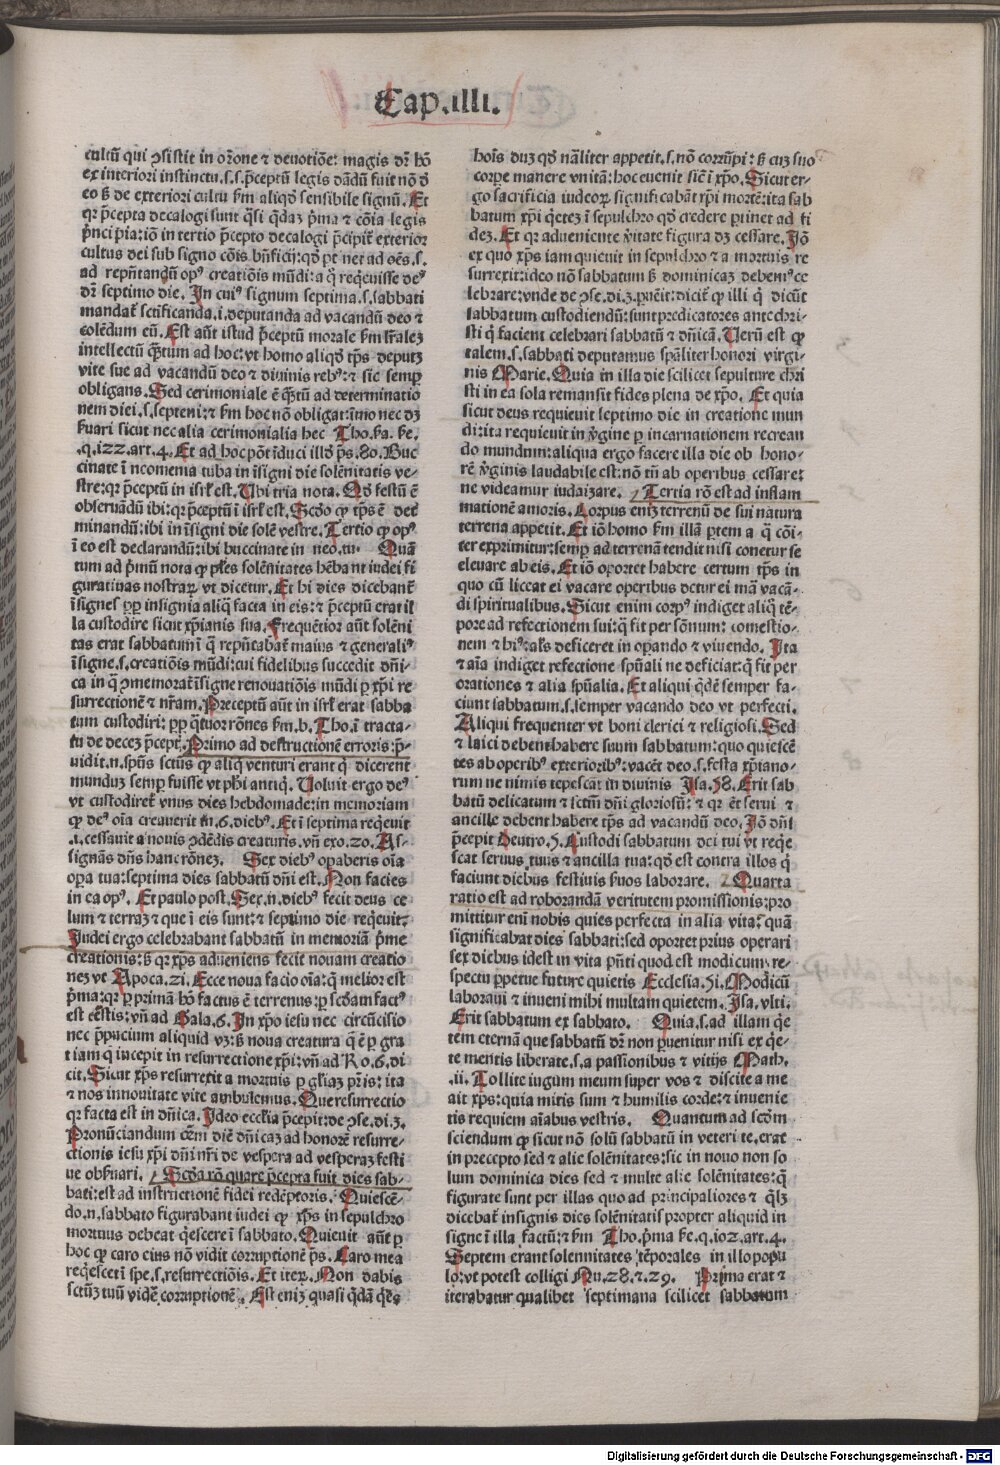 Cap.iiii.
cultū qui ꝯsistit in orōne ⁊ deuotiōe: magis dr̄ hō
ex interiori instinctu.s.s.p̄ceptū legis dādū fuit nō ꝙ
eo ß de exteriori cultu ẜm aliqđ sensibile signū. Et
qr p̄cepta decalogi sunt q̄si q̄daʒ p̄ma ⁊ cōia legis
p̄ncipia: iō in tertio p̄cepto decalogi p̄cipit̄ exterior
cultus dei sub signo cōis bn̄ficij: qđ ptinet ad oēs.s.
ad repn̄tandū opꝰ creatiōis mūdi: a q̄ reqeuisse deꝰ
dr̄ septimo die. In cuiꝰ signum septima.s.sabbati
mandat̄ sctificanda.i.deputanda ad vacandū deo ⁊
colēdum eū. Est aūt istud p̄ceptū morale ẜm lr̄aleʒ
intellectū q̄tum ad hoc: vt homo aliqđ tp̄s deputʒ
vite sue ad vacandū deo ⁊ diuinis rebꝰ: ⁊ sic semp̄
obligans. Sed cerimoniale ē q̄tū ad determinatio
nem diei.s.septeni: ⁊ ẜm hoc nō obligat: īmo nec dʒ
ẜuari sicut nec alia cerimonialia hec Tho. ẜa. ẜe.
.q.122.art.4. Et ad hoc pōt īduci illđ ps.80. Buc
cinate ī neomenia tuba in īsigni die solēnitatis ve-
stre: qr p̄ceptū in isrl̄ est. Ubi tria nota. Qđ festū ē
obseruādū ibi: qr p̄ceptū ī isrl̄ est. Scđo ꝙ tp̄s ē det̄
minandū: ibi in īsigni die solē vestre. Tertio ꝙ opꝰ
ī eo est declarandū: ibi buccinate in neo.tu. Quā
tum ad p̄mū nota ꝙ p̄les solēnitates hēbant iudei fi
guratiuas nostraꝝ vt dicetur. Et hi dies dicebant̄
īsignes pp̄ insignia aliq̄ facta in eis: ⁊ p̄ceptū erat il
la custodire sicut xp̄ianis sua. Frequētior aūt solēni
tas erat sabbatum ī q̄ repn̄tabat̄ maius ⁊ generaliꝰ
īsigne.s.creatiōis mūdi: cui fidelibus succedit dn̄i-
ca in q̄ ꝯmemorat̄ īsigne renouatiōis mūdi p xp̄i re
surrectionē ⁊ nr̄am. Preceptū aūt in isrl̄ erat sabba
tum custodiri: pp̄ q̄tuor rōnes ẜm.b. Tho. ī tracta-
tu de deceʒ p̄cept. Primo ad destructionē erroris: p̄-
uidit.n.spūs sctūs ꝙ aliq̄ venturi erant q̄ dicerent
mundum semp̄ fuisse vt phi antiq̄. Uoluit ergo deꝰ
vt custodiret̄ vnus dies hebdomade: in memoriam
ꝙ deꝰ oīa creauerit in .6. diebꝰ. Et ī septima reqeuit
.i.cessauit a nouis ꝯdēdis creaturis. vn̄ exo.20. As-
signās dn̄s hanc rōneʒ. Sex diebꝰ opaberis oīa
opa tua: septima dies sabbatū dn̄i est. Non facies
in ea opꝰ. Et paulo post. Sex.n.diebꝰ fecit deus ce
lum ⁊ terraʒ ⁊ que ī eis sunt: ⁊ septimo die reqeuit.
Iudei ergo celebrabant sabbatū in memoriā p̄me
creationis: ß qr xp̄s adueniens fecit nouam creatio
neʒ vt Apoca.21. Ecce noua facio oīa: q̄ melior est
p̄ma: qr p primā hō factus ē terrenus: p scđam factꝰ
est cēstis: vn̄ ad Gala.6. In xp̄o iesu nec circūcisio
nec p̄pucium aliquid vʒ: ß noua creatura q̄ ē p gra
tiam q̄ incepit in resurrectione xp̄i: vn̄ ad Ro.6.di
cit. Sicut xp̄s resurrexit a mortuis p gl̄iaʒ pr̄is: ita
⁊ nos innouitate vite ambulemus. Que resurrectio
qr facta est in dn̄ica. Ideo ecclia p̄cepit: de ꝯse.di.3.
Pronūciandum oēm diē dn̄icaʒ ad honorē resurre-
ctionis iesu xp̄i dn̄i nr̄i de vespera ad vesperaʒ festi
ue obẜuari. Scđa rō quare p̄cepta fuit dies sab-
bati: est ad instructionē fidei redēptoris. Quiescē-
do.n.sabbato figurabant iudei ꝙ xp̄s in sepulchro
mortuus debeat q̄escere ī sabbato. Quieuit aūt p
hoc ꝙ caro eius nō vidit corruptionē ps. Caro mea
reqescet ī spe.s.resurrectiōis. Et iteꝝ. Non dabis
sctūʒ tuū vidē corruptionē. Est eniʒ quasi q̄dā q̄les
hoīs duʒ qđ nāliter appetit.s.nō corrūpi: ß cuʒ suo
corpe manere vnitā: hoc euenit sic̄ ī xp̄o. Sicut er-
go sacrificia iudeoꝝ significabāt xp̄i mortē: ita sab
batum xp̄i q̄teʒ ī sepulchro qđ credere ptinet ad fi
deʒ. Et qr adueniente v̄itate figura dʒ cessare. Iō
ex quo xp̄s iam quieuit in sepulchro ⁊ a mortuis re
surrexit: ideo nō sabbatum ß dominicaʒ debemꝰ ce
lebrare: vnde de ꝯse.di.3.puēit: dicit̄ ꝙ illi q̄ dicūt
sabbatum custodiendū: sunt predicatores antechri-
sti q̄ facient celebrari sabbatū ⁊ dn̄icā. Uerū est ꝙ
talem.s.sabbati deputamus spāliter honori virgi-
nis Marie. Quia in illa die scilicet sepulture chri
sti in ea sola remansit fides plena de xp̄o. Et quia
sicut deus requieuit septimo die in creatione mun
di: ita requieuit in v̄gine p incarnationem recrean
do mundum: aliqua ergo facere illa die ob hono-
rē v̄ginis laudabile est: nō tn̄ ab operibus cessare:
ne videamur iudaizare. Tertia rō est ad inflam
mationē amoris. Corpus eniʒ terrenū de sui natura
terrena appetit. Et iō homo ẜm illā ptem a q̄ cōi-
ter exprimitur: semp̄ ad terrenā tendit nisi conetur se
eleuare ab eis. Et iō oportet habere certum tp̄s in
quo cū liceat ei vacare operibus detur ei mā vacā-
di spiritualibus. Sicut enim corpꝰ indiget aliq̄ tē-
pore ad refectionem sui: q̄ fit per sōnum: comestio-
nem ⁊ hiꝰ: als̄ deficeret in opando ⁊ viuendo. Ita
⁊ aīa indiget refectione spūali ne deficiat: q̄ fit per
orationes ⁊ alia spūalia. Et aliqui q̄dē semper fa-
ciunt sabbatum.s.semper vacando deo vt perfecti.
Aliqui frequenter vt boni clerici ⁊ religiosi. Sed
⁊ laici debent habere suum sabbatum: quo quiescē
tes ab operibꝰ exterioribꝰ: vacēt deo.s.festa xp̄iano-
rum ne nimis tepescāt in diuinis Isa.58. Erit sab
batū delicatum ⁊ sctm̄ dn̄i gloriosū: ⁊ qr ēt serui ⁊
ancille debent habere tp̄s ad vacandū deo. Iō dn̄s
p̄cepit Deutro.5. Custodi sabbatum dei tui vt reqe
scat seruus tuus ⁊ ancilla tua: qđ est contra illos q̄
faciunt diebus festiuis ẜuos laborare. Quarta
ratio est ad roborandā veritutem promissionis: pro
mittitur enī nobis quies perfecta in alia vita: quā
significabat dies sabbati: sed oportet prius operari
sex diebus idest in vita pn̄ti quod est modicum re-
spectu ppetue future quietis Ecclesia.51. Modicū
laboraui ⁊ inueni mihi multam quietem. Isa.vlti.
Erit sabbatum ex sabbato. Quia.s.ad illam q̄e
tem eternā que sabbatū dr̄ non puenitur nisi ex q̄e-
te mentis liberate.s.a passionibus ⁊ vitijs Math.
.11. Tollite iugum meum super vos ⁊ discite a me
ait xp̄s: quia mitis sum ⁊ humilis corde: ⁊ inuenie
tis requiem aīabus vestris. Quantum ad scđm
sciendum ꝙ sicut nō solū sabbatū in veteri te.erat
in precepto sed ⁊ alie solēnitates: sic in nouo non so
lum dominica dies sed ⁊ multe alie solēnitates: q̄
figurate sunt per illas quo ad principaliores ⁊ q̄lʒ
dicebat̄ insignis dies solēnitatis propter aliquid in
signe ī illa factū: ⁊ ẜm Tho. p̄ma ẜe.q.102.art.4.
Septem erant solennitates tēporales in illo popu
lo: vt potest colligi Nu.28.⁊.29. Primo erat ⁊
iterabatur qualibet septimana scilicet sabbatum
Digitalisierung gefördert durch die Deutsche Forschungsgemeinschaft - DFG